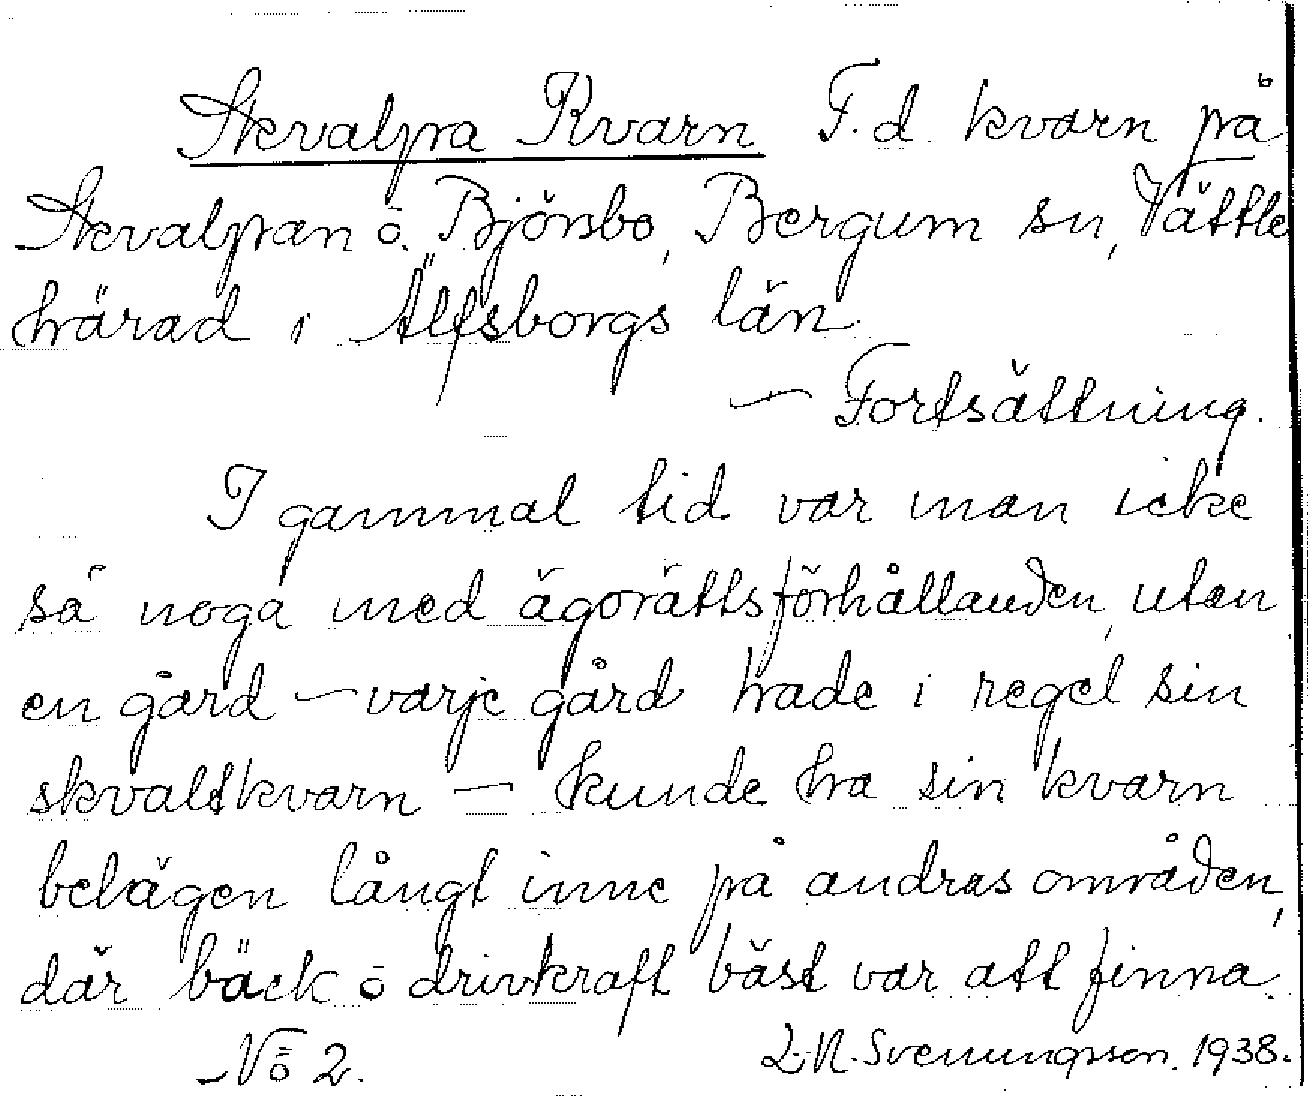 Skvalpa Kvarn F.d. kvarn på
Skvalpan ō. Björsbo, Bergum sn, Vättle
härad i Älfsborgs län.
— Fortsättning.
I gammal tid var man icke
så noga med ägorättsförhållanden, utan
en gård — varje gård hade i regel sin
skvaltkvarn — kunde ha sin kvarn
belägen långt inne på andras områden,
där bäck ō drivkraft bäst var att finna.
No 2. L.N. Svenungsson. 1938.